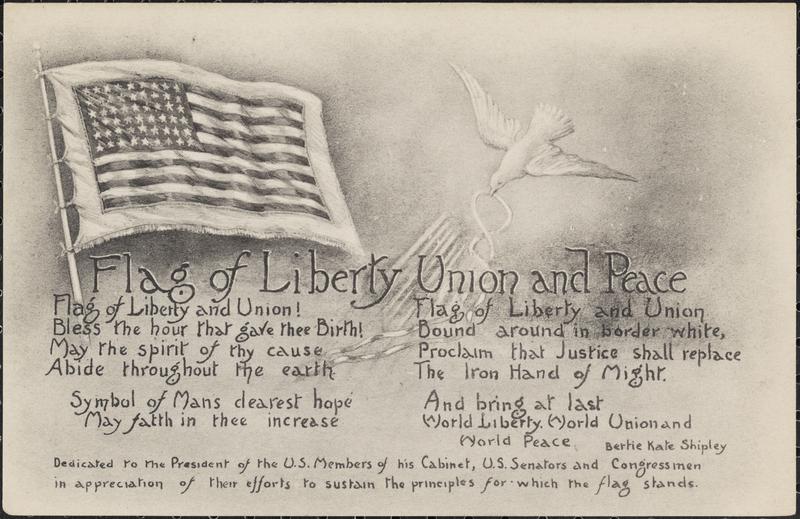 Flag of Liberty Union and Peace
Flag of Liberty and Union!
Bless the hour that gave thee Birth!
May the spirit of thy cause
Abide throughout the earth.
Symbol of Mans dearest hope
May faith in thee increase
Flag of Liberty and Union
Bound around in border white,
Proclaim that Justice shall replace
The Iron Hand of Might.
And bring at last
World Liberty. World Union and
World Peace.
Bertie Kate Shipley
Dedicated to the President of the U.S. Members of his Cabinet, U.S. Senators and Congressmen
in appreciation of their efforts to sustain the principles for which the flag stands.